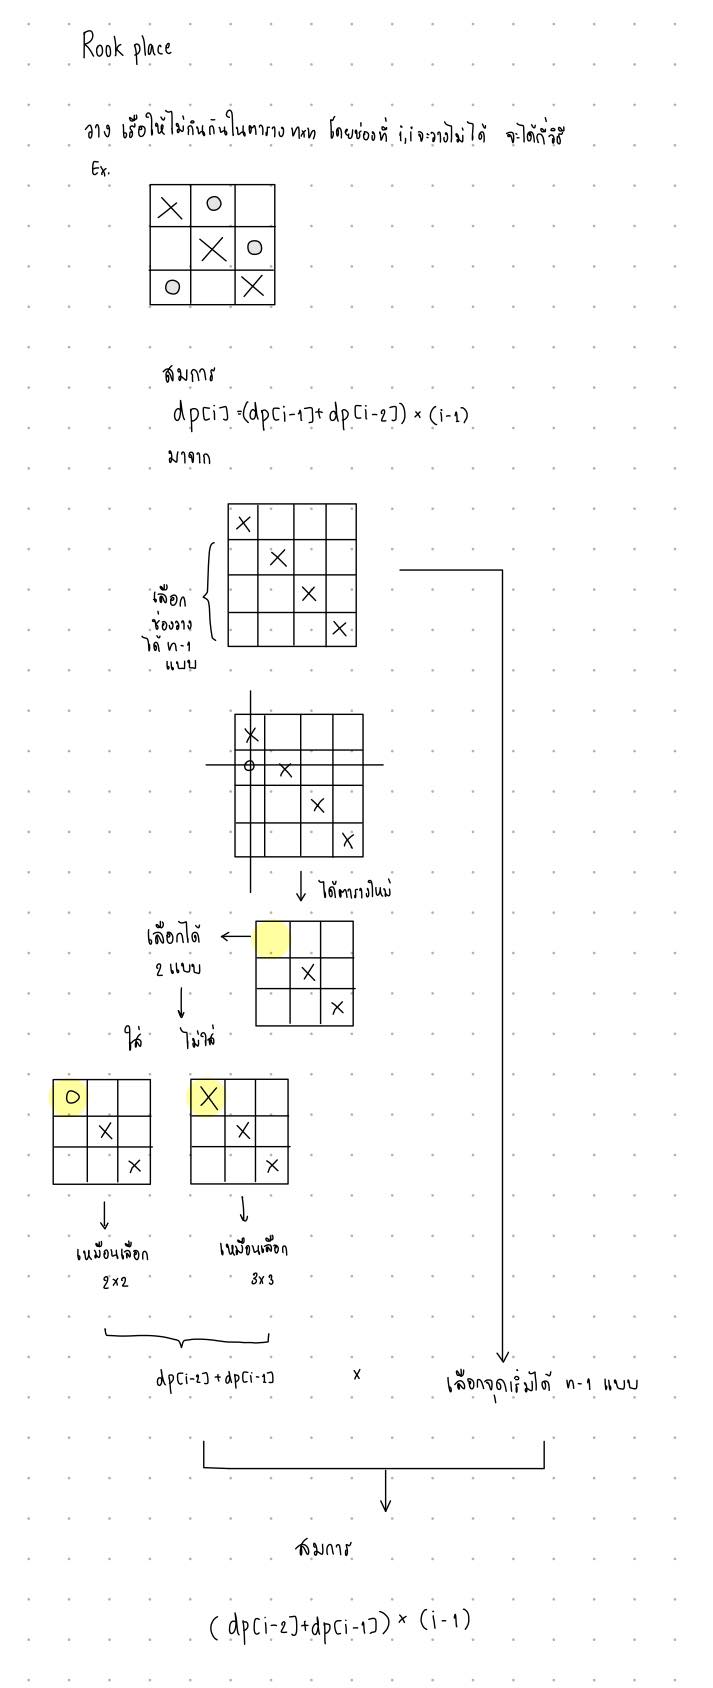 Rook place
วาง เรือให้ไม่กินกันในตาราง n×n โดยช่องที่ i,i จะวางไม่ได้ จะได้กี่วิธี
Ex.
สมการ
dp[i] =(dp[i-1]+ dp[i-2]) × (i-1)
มาจาก
เลือก
ช่องวาง
ได้ n-1
แบบ
ได้ตารางใหม่
เลือกได้
2 แบบ
ใส่ ไม่ใส่
เหมือนเลือก
2×2
เหมือนเลือก
3×3
dp[i-2] + dp[i-1] × เลือกจุดเริ่มได้ n-1 แบบ
สมการ
( dp[i-2]+dp[i-1]) × (i-1)